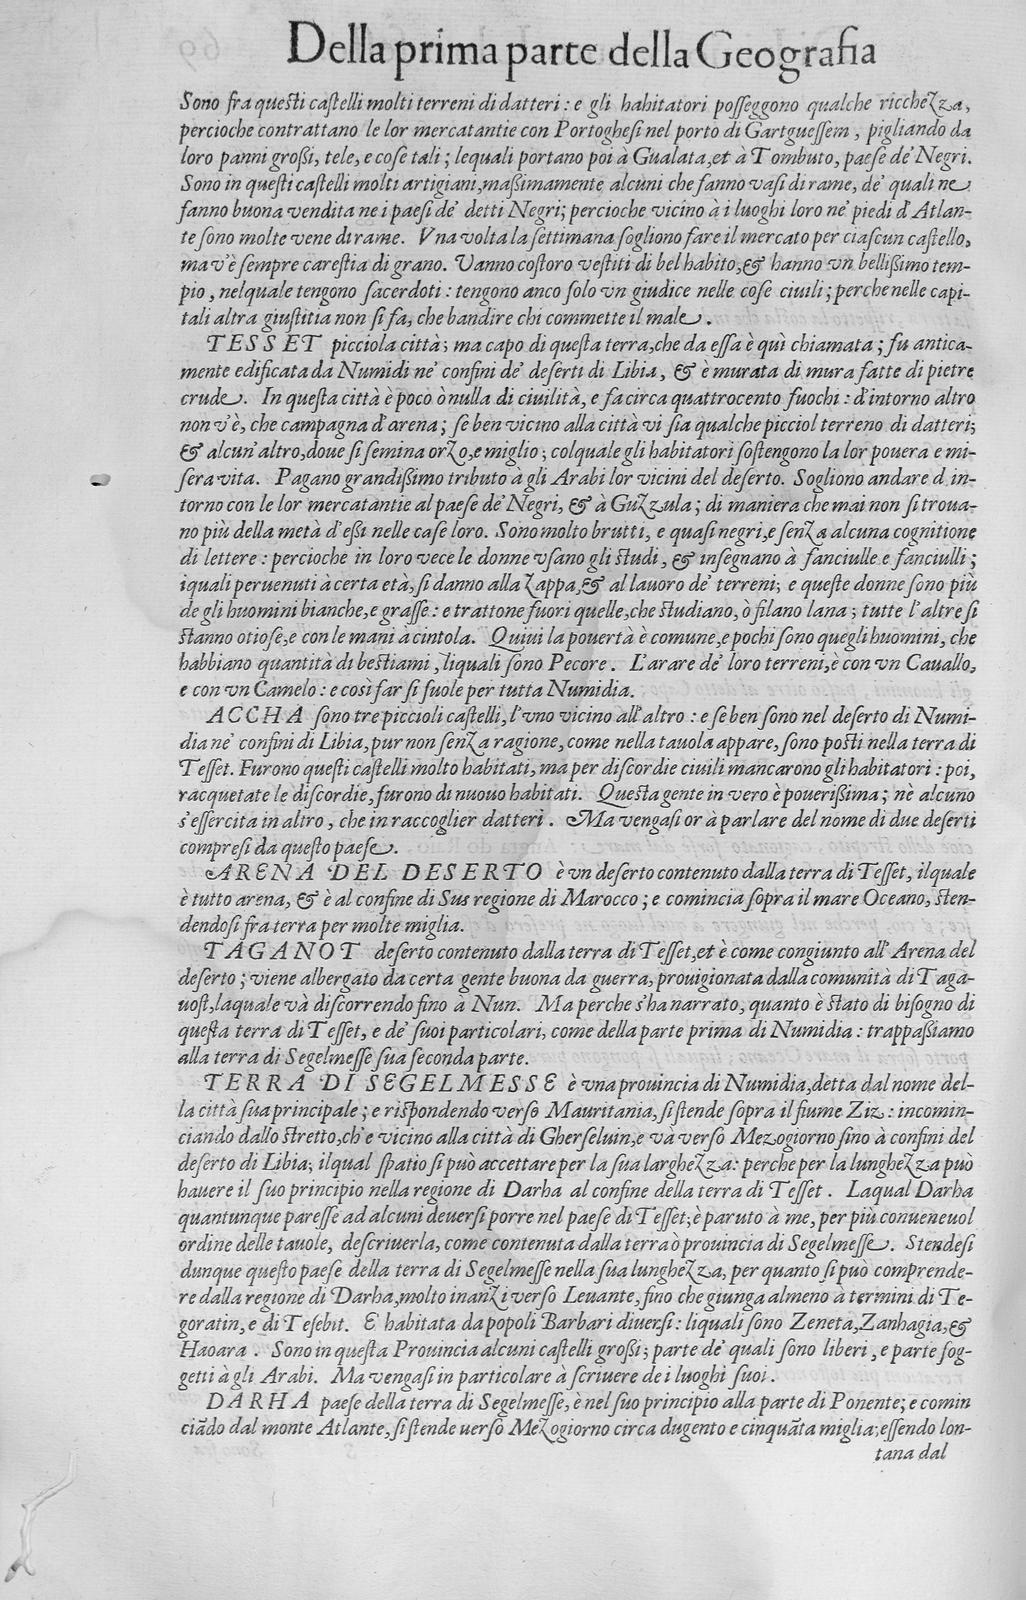 Della prima parte della Geografia
Sono fra questi castelli molti terreni di datteri: e gli habitatori posseggono qualche ricchezza,
percioche contrattano le lor mercatantie con Portoghesi nel porto di Gartguessem, pigliando da
loro panni grossi, tele, e cose tali; lequali portano poi à Gualata, et à Tombuto, paese de' Negri.
Sono in questi castelli molti artigiani, massimamente alcuni che fanno vasi di rame, de' quali ne
fanno buona vendita ne i paesi de' detti Negri; percioche vicino à i luoghi loro ne' piedi d'Atlan-
te sono molte vene di rame. Vna volta la settimana sogliono fare il mercato per ciascun castello,
ma v'è sempre carestia di grano. Vanno costoro vestiti di bel habito, & hanno vn bellissimo tem-
pio, nelquale tengono sacerdoti: tengono anco solo vn giudice nelle cose ciuili; perche nelle capi-
tali altra giustitia non si fa, che bandire chi commette il male.
TESSET picciola città; ma capo di questa terra, che da essa è quì chiamata; fu antica-
mente edificata da Numidi ne' confini de' deserti di Libia, & è murata di mura fatte di pietre
crude. In questa città è poco ò nulla di ciuilità, e fa circa quattrocento fuochi: d'intorno altro
non v'è, che campagna d'arena; se ben vicino alla città vi sia qualche picciol terreno di datteri;
& alcun'altro, doue si semina orzo, e miglio; colquale gli habitatori sostengono la lor pouera e mi-
sera vita. Pagano grandissimo tributo à gli Arabi lor vicini del deserto. Sogliono andare d'in-
torno con le lor mercatantie al paese de' Negri, & à Guzzula; di maniera che mai non si troua-
no più della metà d'essi nelle case loro. Sono molto brutti, e quasi negri, e senza alcuna cognitione
di lettere: percioche in loro vece le donne vsano gli studi, & insegnano à fanciulle e fanciulli;
i quali peruenuti à certa età, si danno alla zappa, & al lauoro de' terreni; e queste donne sono più
de gli huomini bianche, e grasse: e trattone fuori quelle, che studiano, ò filano lana; tutte l'altre si
stanno otiose, e con le mani à cintola. Quiui la pouertà è comune, e pochi sono quegli huomini, che
habbiano quantità di bestiami, liquali sono Pecore. L'arare de' loro terreni, è con vn Cauallo,
e con vn Camelo: e così far si suole per tutta Numidia.
ACCHA sono tre piccioli castelli, l'vno vicino all'altro: e se ben sono nel deserto di Numi-
dia ne' confini di Libia, pur non senza ragione, come nella tauola appare, sono posti nella terra di
Tesset. Furono questi castelli molto habitati, ma per discordie ciuili mancarono gli habitatori: poi,
racquetate le discordie, furono di nuouo habitati. Questa gente in vero è pouerissima; nè alcuno
s'essercita in altro, che in raccoglier datteri. Ma vengasi or à parlare del nome di due deserti
compresi da questo paese.
ARENA DEL DESERTO è vn deserto contenuto dalla terra di Tesset, ilquale
è tutto arena, & è al confine di Sus regione di Marocco; e comincia sopra il mare Oceano, sten-
dendosi fra terra per molte miglia.
TAGANOT deserto contenuto dalla terra di Tesset, et è come congiunto all'Arena del
deserto; viene albergato da certa gente buona da guerra, prouigionata dalla comunità di Taga-
uost, laquale và discorrendo fino à Nun. Ma perche s'ha narrato, quanto è stato di bisogno di
questa terra di Tesset, e de' suoi particolari, come della parte prima di Numidia: trappassiamo
alla terra di Segelmesse sua seconda parte.
TERRA DI SEGELMESSE è vna prouincia di Numidia, detta dal nome del-
la città sua principale; e rispondendo verso Mauritania, si stende sopra il fiume Ziz: incomin-
ciando dallo stretto, ch'è vicino alla città di Gherseluin, e và verso Mezogiorno sino à confini del
deserto di Libia; ilqual spatio si può accettare per la sua larghezza: perche per la lunghezza può
hauere il suo principio nella regione di Darha al confine della terra di Tesset. Laqual Darha
quantunque paresse ad alcuni deuersi porre nel paese di Tesset; è paruto à me, per più conueneuol
ordine delle tauole, descriuerla, come contenuta dalla terra ò prouincia di Segelmesse. Stendesi
dunque questo paese della terra di Segelmesse nella sua lunghezza, per quanto si può comprende-
re dalla regione di Darha, molto inanzi verso Leuante, fino che giunga almeno à termini di Te-
goratin, e di Tesebit. E habitata da popoli Barbari diuersi: liquali sono Zeneta, Zanhagia, &
Haoara. Sono in questa Prouincia alcuni castelli grossi; parte de' quali sono liberi, e parte sog-
getti à gli Arabi. Ma vengasi in particolare à scriuere de i luoghi suoi.
DARHA paese della terra di Segelmesse, è nel suo principio alla parte di Ponente; e comin
ciãdo dal monte Atlante, si stende uerso Mezogiorno circa dugento e cinquãta miglia; essendo lon-
tana dal